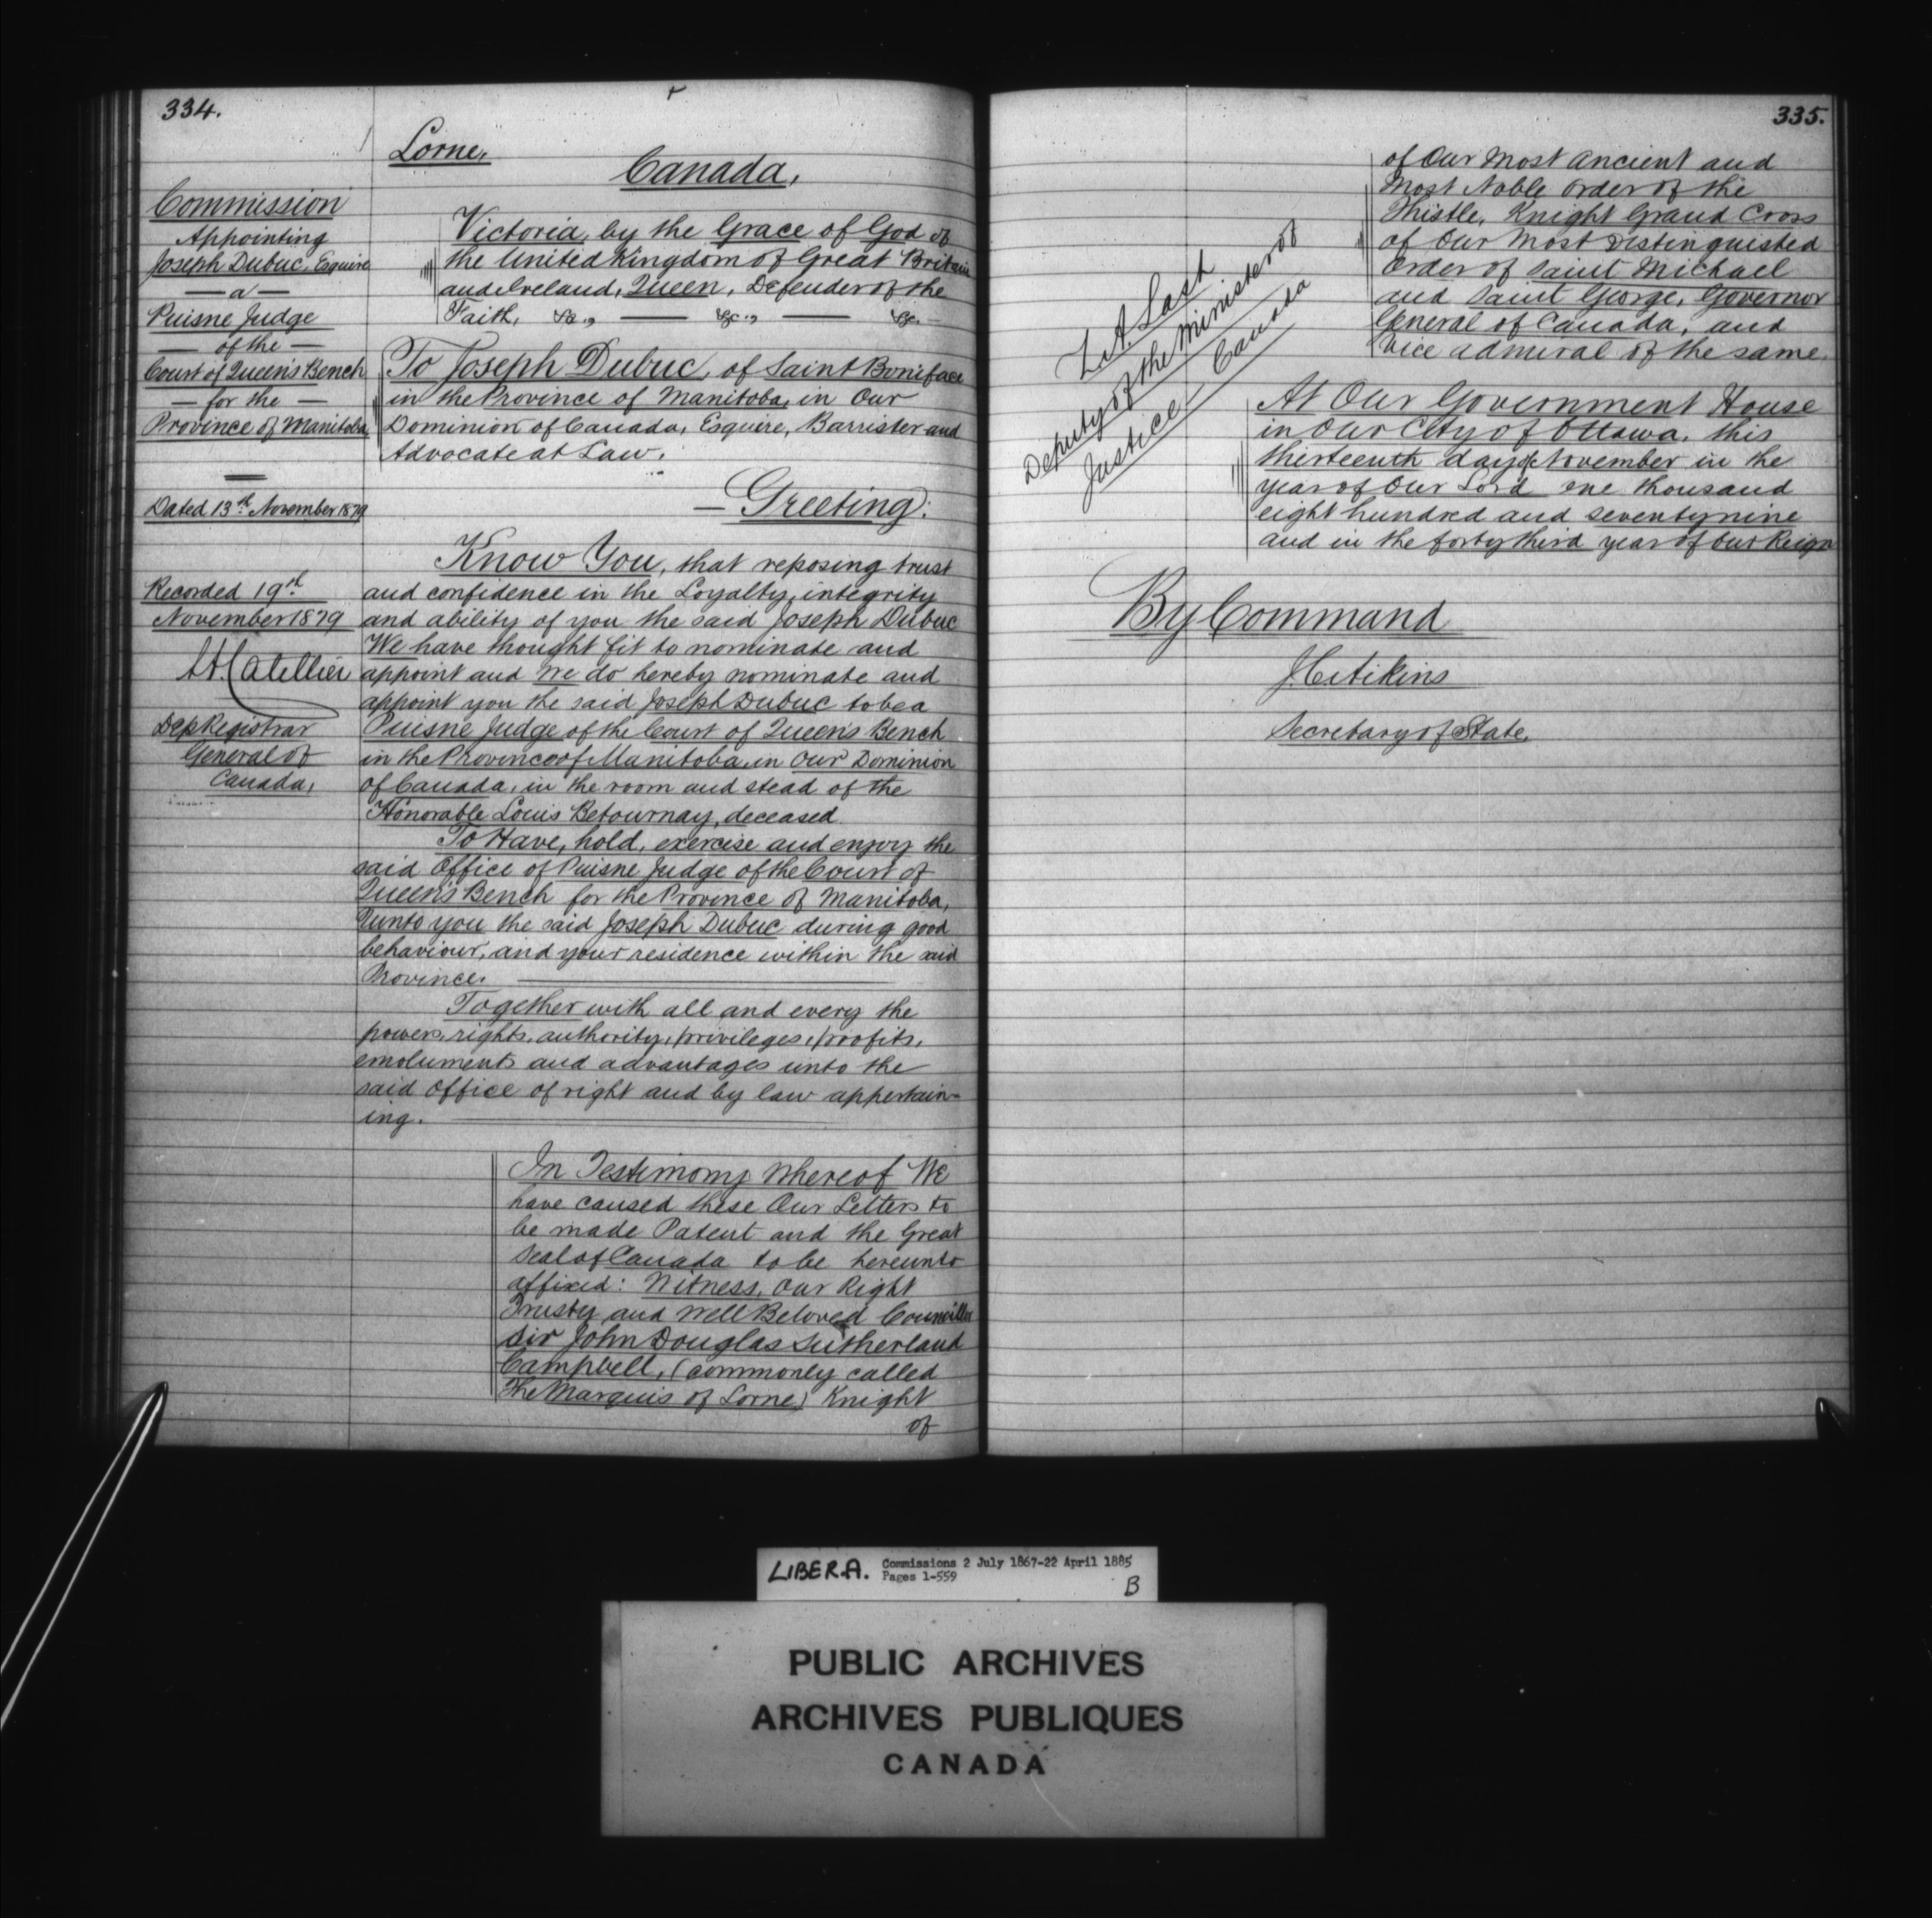 334.
Commission
Appointing
Joseph Dubuc, Esquire
— a —
Puisne Judge
— of the —
Court of Queen's Bench
— for the —
Province of Manitoba
Dated 13th November 1879
Recorded 19th
November 1879
Dep Registrar
General of
Canada,
Lorne,
Canada,
Victoria, by the Grace of God of
the United Kingdom of Great Britain
and Ireland, Queen, Defender of the
Faith, &c., — &c., — &c.
To Joseph Dubuc, of Saint Boniface
in the Province of Manitoba, in Our
Dominion of Canada, Esquire, Barrister and
Advocate at Law.
— Greeting:
Know You, that reposing trust
and confidence in the Loyalty, integrity
and ability of you the said Joseph Dubuc
We have thought fit to nominate and
appoint and We do hereby nominate and
appoint you the said Joseph Dubuc to be a
Puisne Judge of the Court of Queen's Bench
in the Province of Manitoba, in Our Dominion
of Canada, in the room and stead of the
Honorable Louis Betournay, deceased.
To Have, hold, exercise and enjoy the
said Office of Puisne Judge of the Court of
Queen's Bench for the Province of Manitoba,
unto you the said Joseph Dubuc during good
behaviour, and your residence within the said
Province.
Together with all and every the
powers, rights, authority, privileges, profits,
emoluments and advantages unto the
said Office of right and by law appertain-
ing.
In Testimony Whereof We
have caused these Our Letters to
be made Patent and the Great
Seal of Canada to be hereunto
affixed: Witness, Our Right
Trusty and Well Beloved Councillor
Sir John Douglas Sutherland
Campbell, (commonly called
the Marquis of Lorne) Knight
of
335.
of Our Most Ancient and
Most Noble Order of the
Thistle, Knight Grand Cross
of Our Most Distinguished
Order of Saint Michael
and Saint George, Governor
General of Canada, and
Vice Admiral of the same.
Z. A. Lash
Deputy of the Minister of
Justice, Canada
At Our Government House
in Our City of Ottawa, this
thirteenth day of November in the
year of Our Lord one thousand
eight hundred and seventy nine
and in the forty third year of Our Reign
By Command
J. C. Aikins
Secretary of State.
LIBER.A. Commissions 2 July 1867-22 April 1885
Pages 1-559
B
PUBLIC ARCHIVES
ARCHIVES PUBLIQUES
CANADA